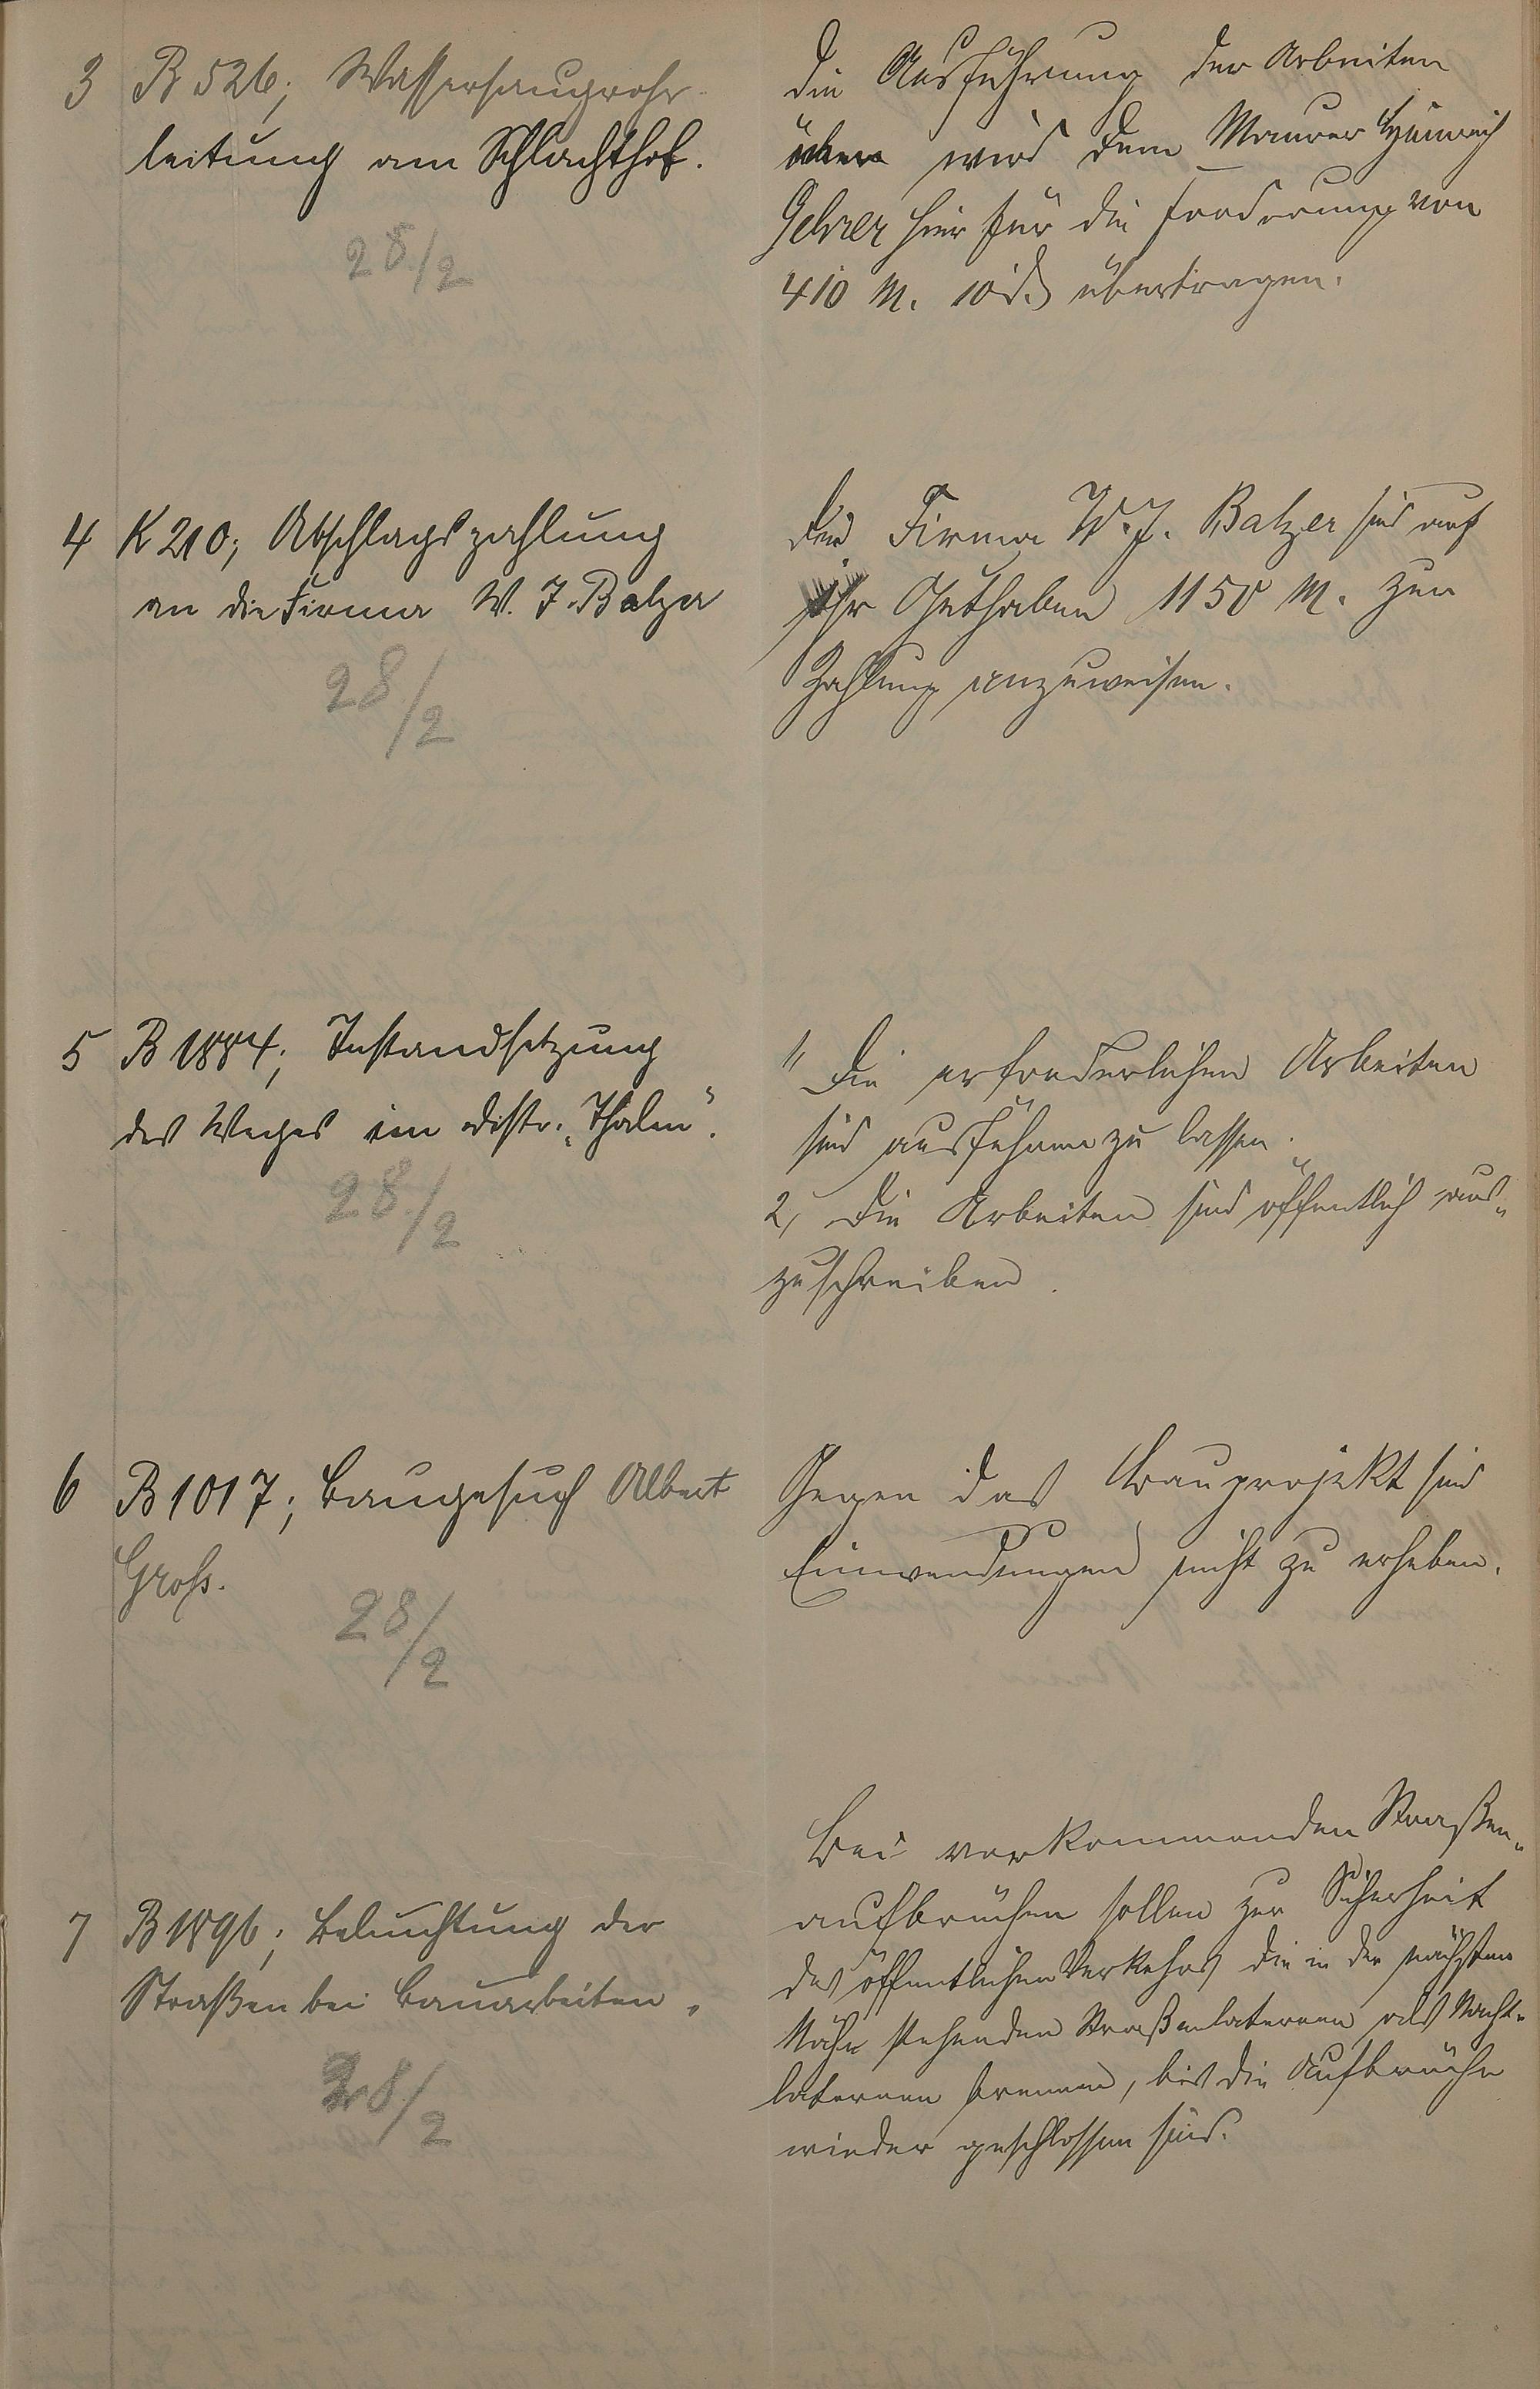 3 B 526; Wassersaugrohr-
leitung am Schlachthof.
28/2
Die Ausführung der Arbeiten
wird dem Maurer Heinrich
Gehrer hier für die Forderung von
410 M. 10 d. übertragen.
4 K 210; Abschlagszahlung
an die Firma W. J. Balzer
28/2
Der Firma W. J. Balzer sind auf
ihr Guthaben 1150 M. zur
Zahlung anzuweisen.
5 B 1884; Instandsetzung
des Weges im Distr. „Thalen“.
28/2
1, Die erforderlichen Arbeiten
sind ausführen zu lassen.
2, Die Arbeiten sind öffentlich aus-
zuschreiben.
6 B 1017; Baugesuch Albert
Groß.
28/2
Gegen das Bauprojekt sind
Einwendungen nicht zu erheben.
7 B 1896; Beleuchtung der
Straßen bei Bauarbeiten.
28/2
Bei vorkommenden Straßen-
aufbrüchen sollen zur Sicherheit
des öffentlichen Verkehrs die in der nächsten
Nähe stehenden Straßenlaternen als Nacht-
laternen brennen, bis die Aufbrüche
wieder geschlossen sind.